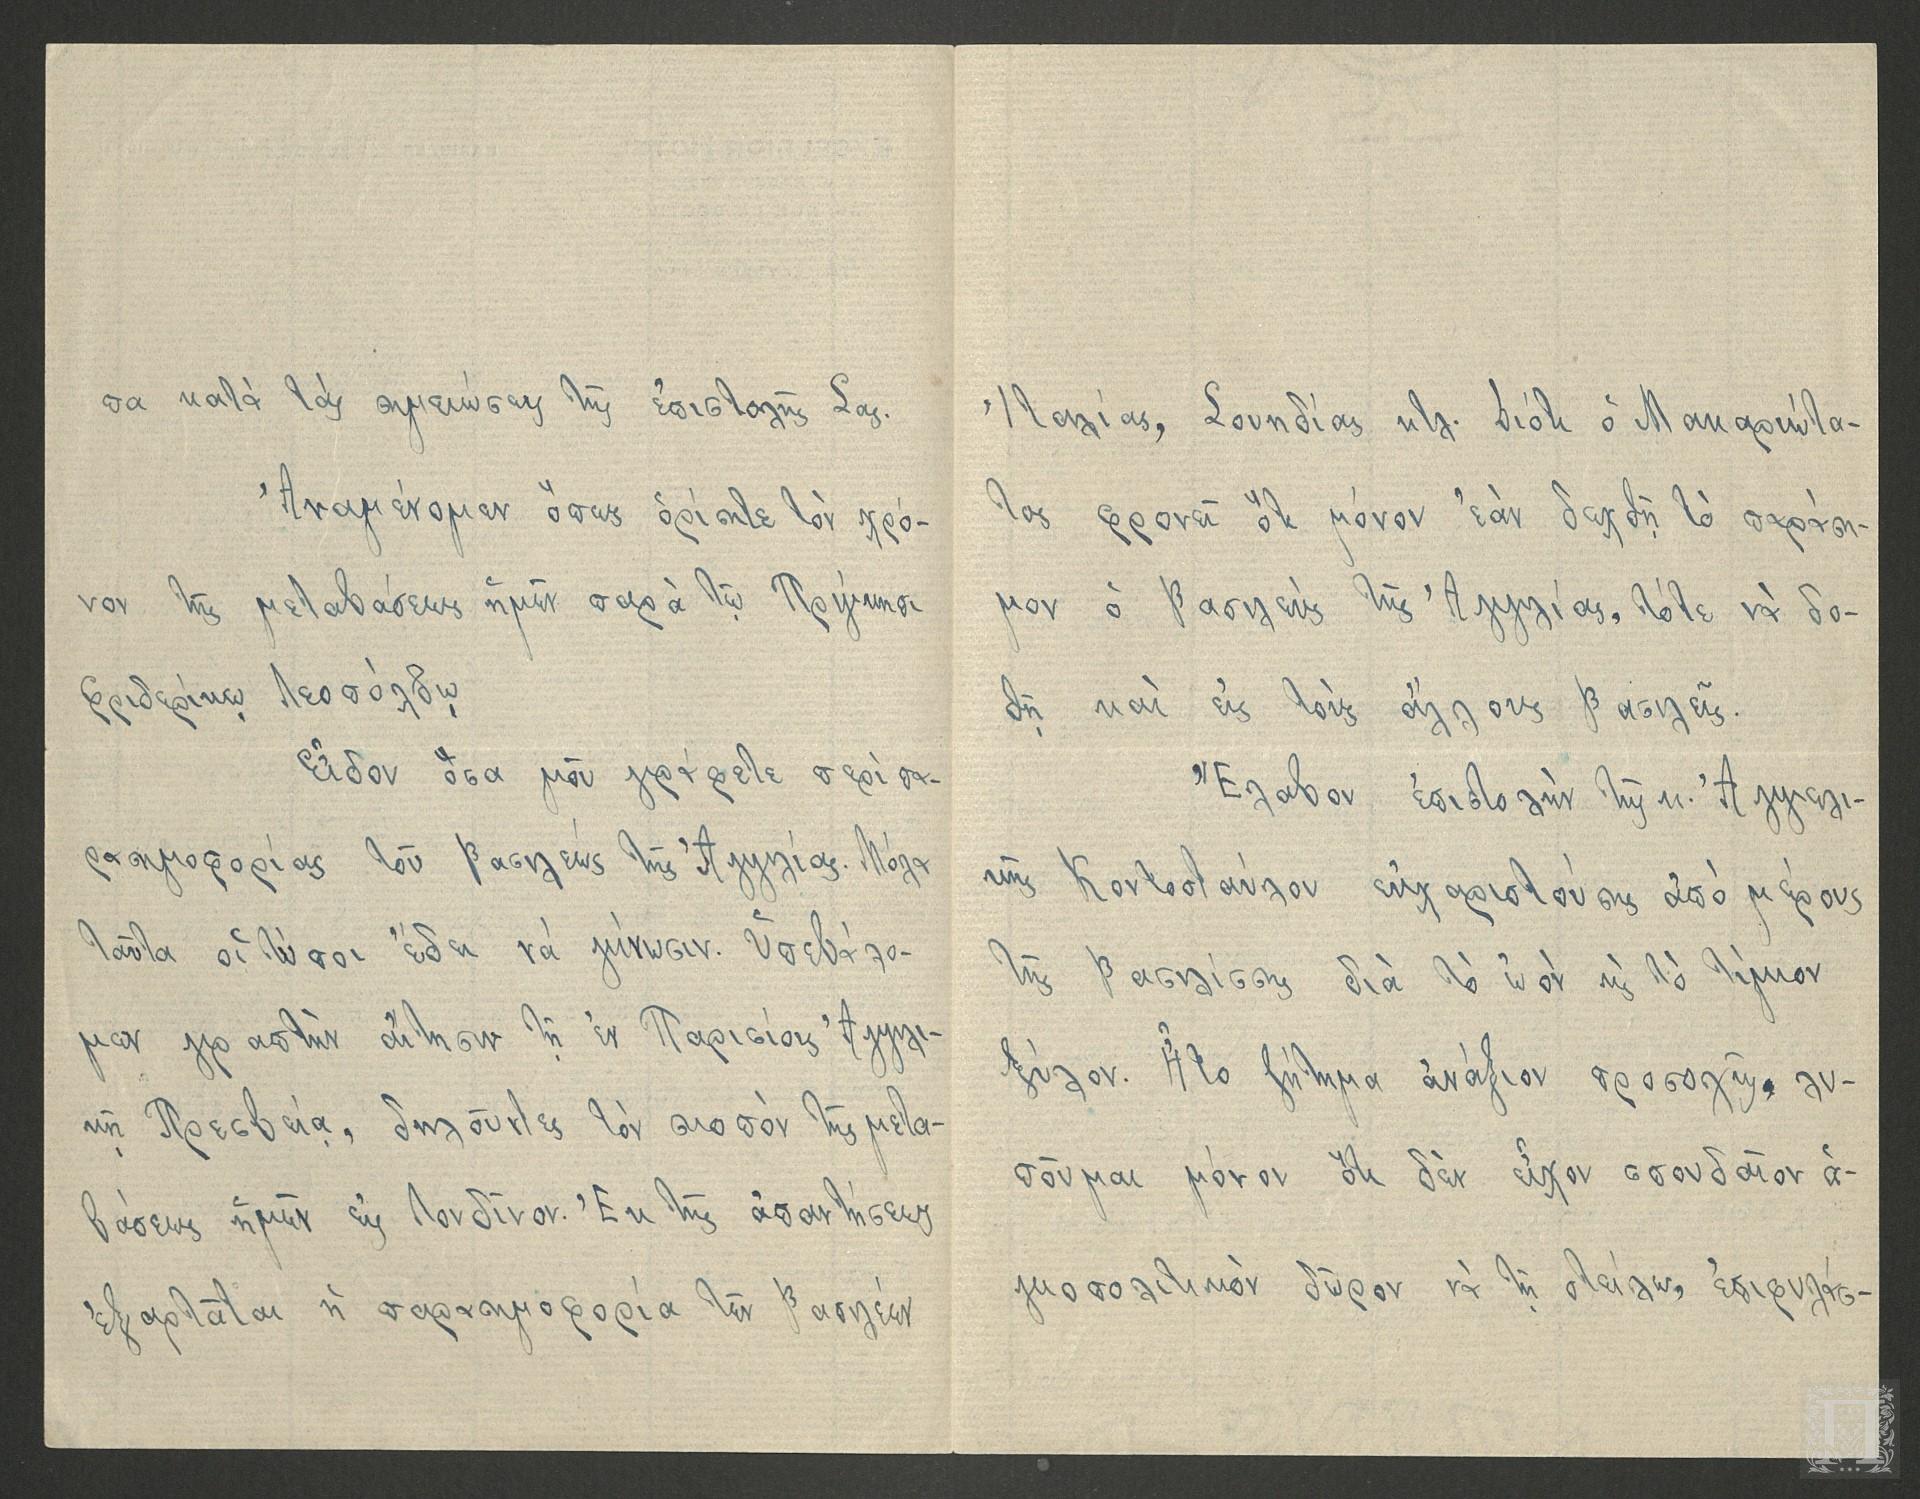 πα κατὰ τὰς σημειώσεις τῆς ἐπιστολῆς Σας.
Ἀναμένομεν ὅπως ὁρίσητε τὸν χρό-
νον τῆς μεταβάσεως ἡμῶν παρὰ τῷ Πρίγκηπι
Φριδερίκῳ Λεοπόλδῳ
Εἶδον ὅσα μοῦ γράφετε περὶ πα-
ρασημοφορίας τοῦ βασιλέως τῆς Ἀγγλίας. Μόλα
ταῦτα οἱ τύποι ἔδει νά γίνωσιν. Ὑπεβάλο-
μεν γραπτὴν αἴτησιν τῇ ἐν Παρισίοις Ἀγγλι-
κῇ Πρεσβείᾳ, δηλοῦντες τὸν σκοπὸν τῆς μετα-
βάσεως ἡμῶν εἰς Λονδῖνον. Ἐκ τῆς ἀπαντήσεως
ἐξαρτᾶται ἡ παρασημοφορία τῶν βασιλέων
Ἰταλίας, Σουηδίας κτλ. διότι ὁ Μακαριώτα-
τος φρονεῖ ὅτι μόνον ἐὰν δεχθῇ τὸ παράση-
μον ὁ βασιλεὺς τῆς Ἀγγλίας, τότε νὰ δο-
θῇ καὶ εἰς τοὺς ἄλλους βασιλεῖς.
Ἔλαβον ἐπιστολὴν τῆς κ. Ἀγγελι-
κῆς Κοντοσταύλου εὐχαριστούσης ἀπὸ μέρους
τῆς βασιλίσσης διὰ τὸ ὠὸν κ τὸ τίμιον
ξύλον. Ἦτο ζήτημα ἀνάξιον προσοχῆς, λυ-
ποῦμαι μόνον ὅτι δὲν εἶχον σπουδαῖον ἁ-
γιοπολιτικὸν δῶρον νὰ τῇ στείλω, ἐπιφυλάσ-